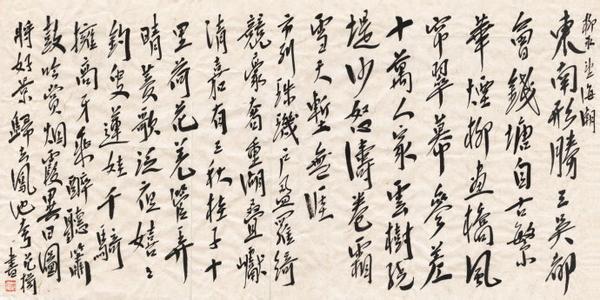 柳永望海潮
東南形勝三吳都
會錢塘自古繁
華煙柳畫橋風
帘翠幕參差
十萬人家雲樹繞
堤沙怒濤卷霜
雪天塹無涯
市列珠璣戶盈羅綺
競豪奢重湖疊巘
清嘉有三秋桂子十
里荷花羌管弄
晴菱歌泛夜嬉〻
釣叟蓮娃千騎
擁高牙乘醉聽簫
鼓吟賞烟霞異日圖
將好景歸去鳳池夸
范揚
書